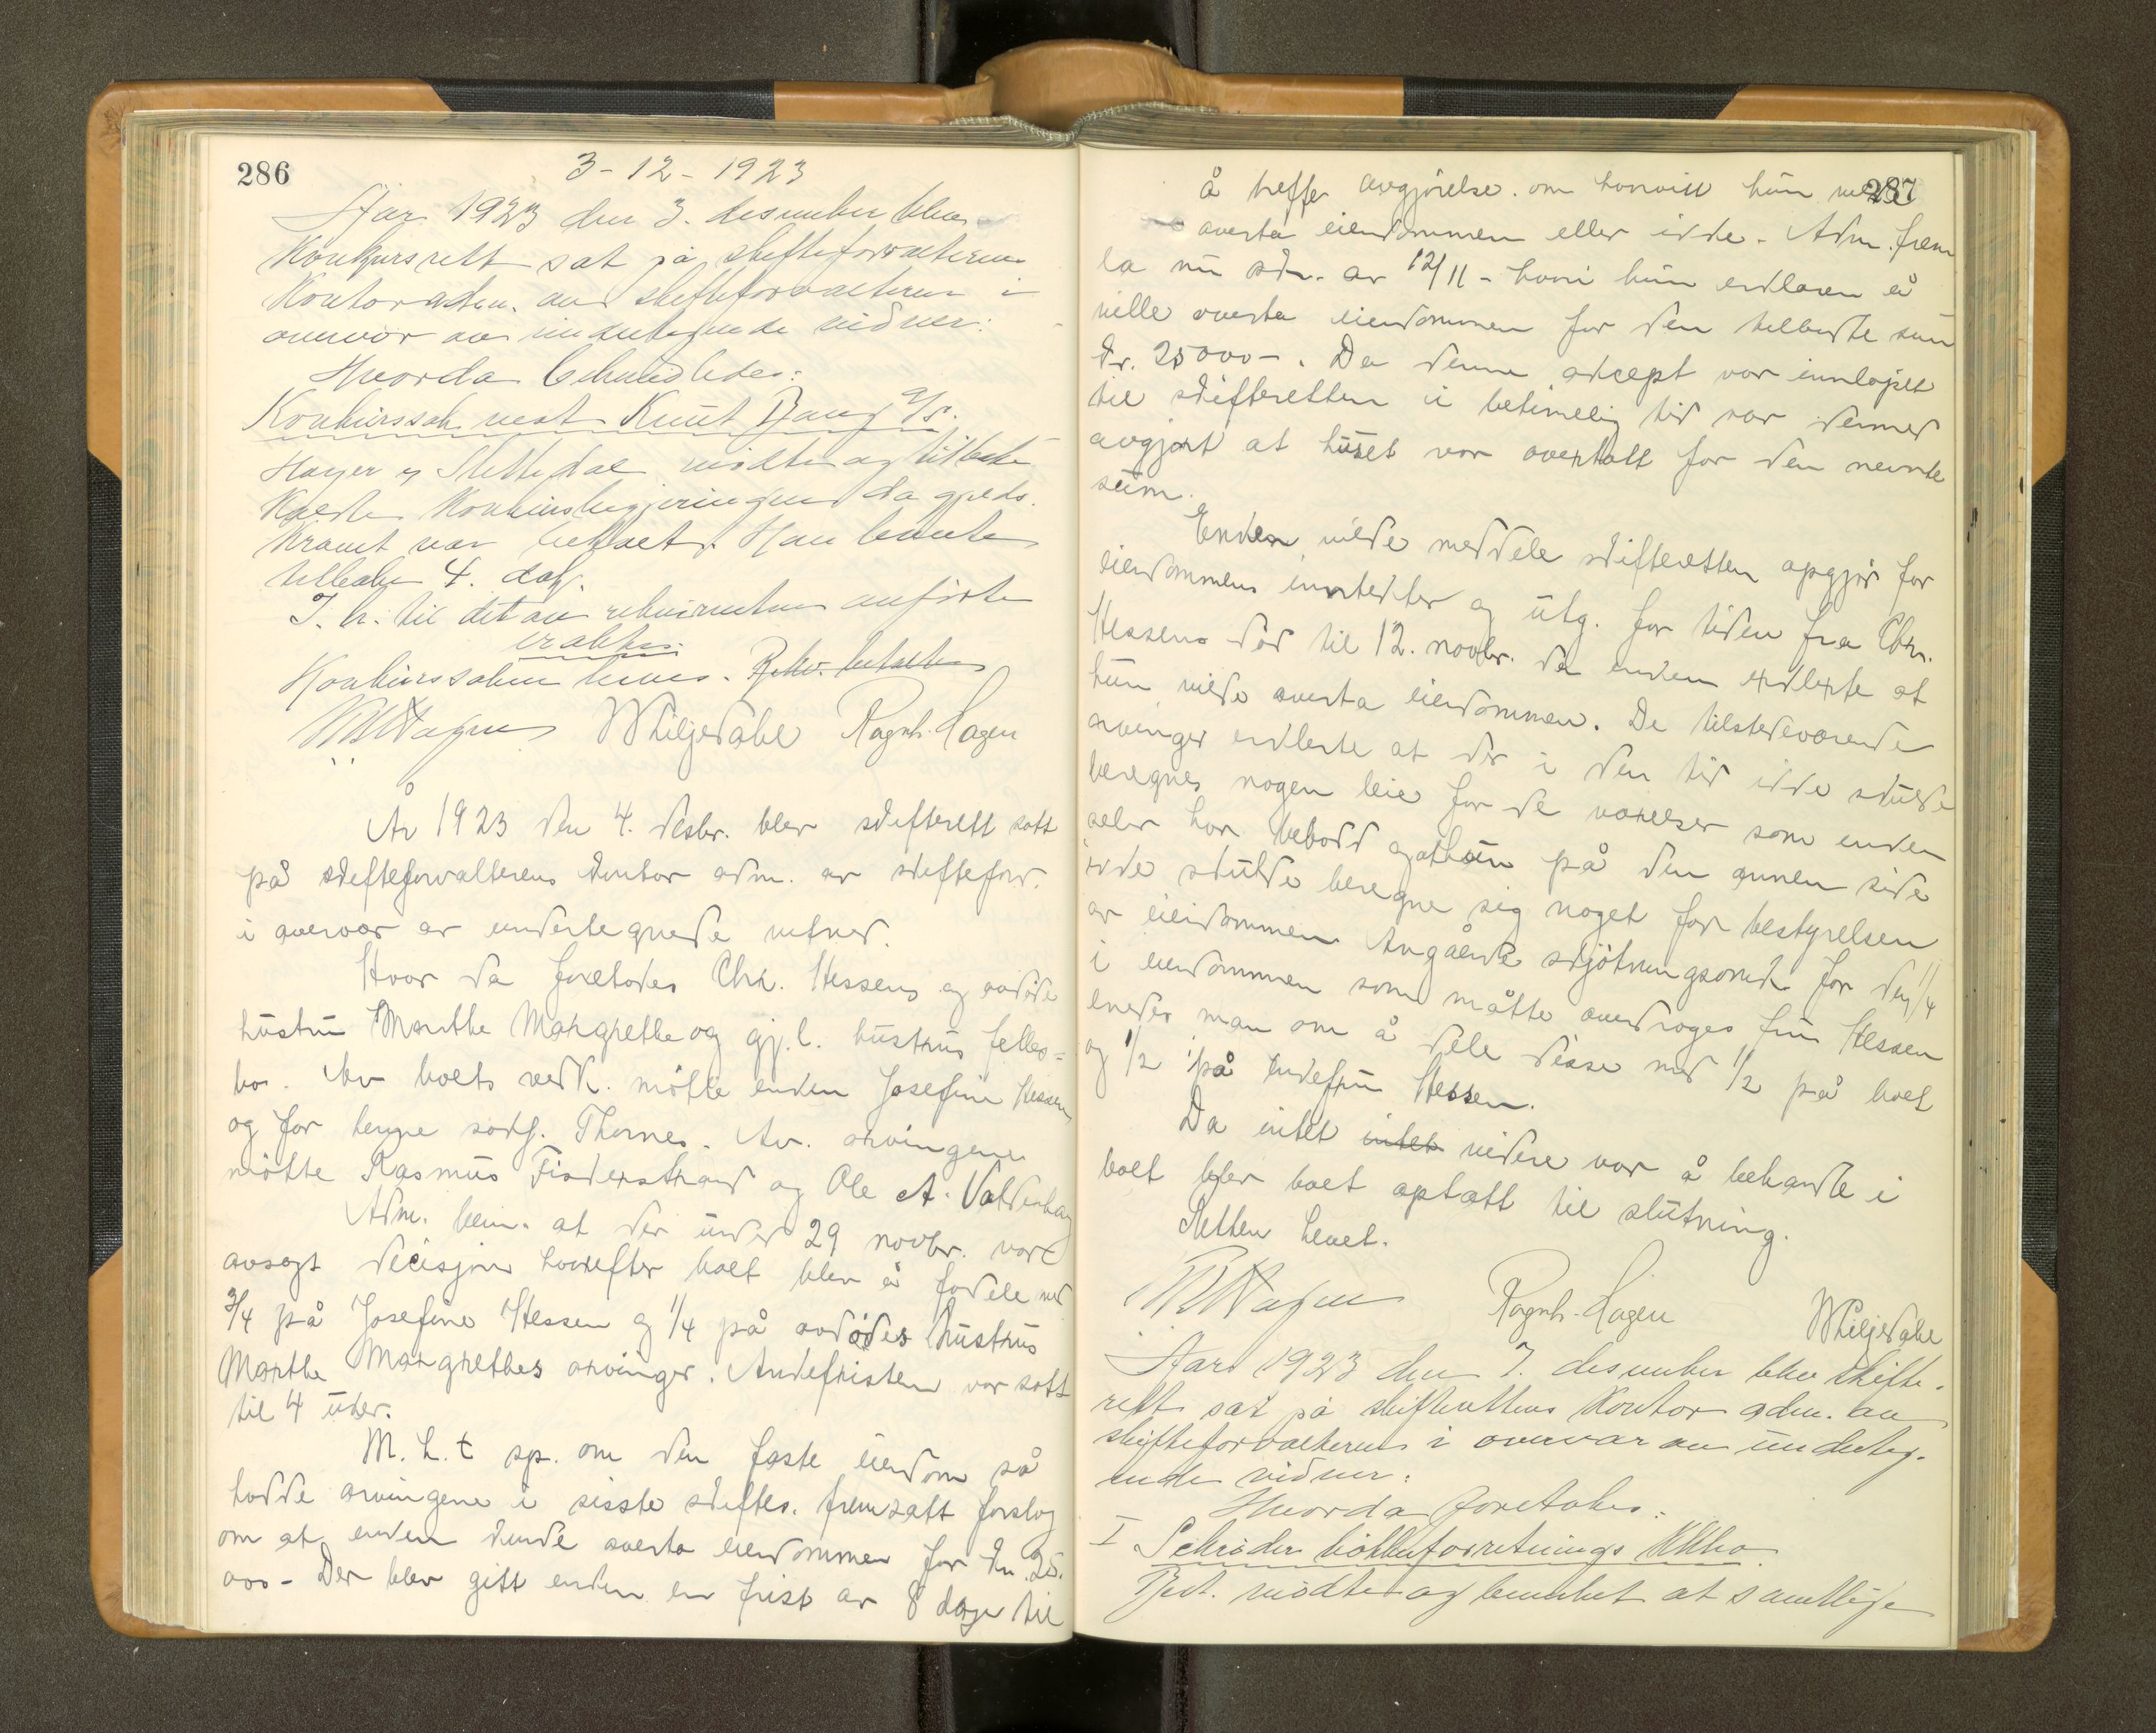 286
3-12-1923
Aar 1923 den 3. desember blev
Konkursrett sat på skifteforvalterens
Kontor adm. av skifteforvalteren i
overvær av undertegnede vidner:
Hvorda behandledes:
Konkurssak mot Knut Bang A/S.
Høyer og Slettedal mødte og tilbake
kaldte konkursbegjæringen da gjelds
kravet var betalt. Han leverte
tilbake 4. dok.
I. h. til det av rekvirenten anførte
eraktes
Konkurssaken hevet. Rekv. betaltes
Wagen WLiljedahl Ragnh. Hagen
År 1923 den 4. desbr. blev skifterett satt
på skifteforvalterens kontor adm. av skifteforv.
i overvær av undertegnede vitner.
Hvor da foretokes Chr. Hessens og avdøde
hustru Marthe Margrethe og gj.l. hustrus felles-
bo. Av boets vedk. møtte enken Josefine Hessen
og for henne sakf. Thornes. Av arvingene
møtte Rasmus Fiskerstrand og Ole A. Valderhaug
Adm. bem. at der under 29 novbr. vart
avsagt decisjon hvorefter boet blev å fordele med
3/4 på Josefine Hessen og 1/4 på avdødes hustrus
Marthe Margrethes arvinger. Ankefristen var satt
til 4 uker.
M. h. t sp. om den faste eiendom så
hadde arvingene i sisste skiftes. fremsatt forslag
om at enken kunde overta eiendommen for kr. 25.
000 - Der blev gitt enken en frist av 8 dager til
287
å treffe avgjørelse om hvorvitt hun vilde
overta eiendommen eller ikke. Adm. frem
la nu skr. av 12/11 - hvori hun erklærer å
ville overta eiendommen for den tilbudte sum
kr. 25000-. Da denne akcept var innløpet
til skifteretten i betimelig tid var dermed
avgjort at huset var overtatt for den nevnte
sum.
Enken vilde meddele skifteretten opgjør for
eiendommens inntekter og utg. for tiden fra Chr.
Hessens død til 12. novbr. da enken erklærte at
hun vilde overta eiendommen. De tilstedeværende
arvinger erklærte at der i den tid ikke skulde
beregnes nogen leie for de værelser som enken
selv har bebodd og at hun på den annen side
ikke skulde beregne sig noget for bestyrelsen
av eiendommen. Angående skjøtningsomk. for den 1/4
i eiendommen som måtte overdrages fru Hessen
enedes man om å dele disse med 1/2 på boet
og 1/2 på enkefru Hessen.
Da intet intet videre var å behandle i
boet blev boet optatt til slutning.
Retten hevet.
Wagen Ragnh. Hagen WLiljedahl
Aar 1923 den 7. desember blev skifte-
rett sat på skifterettens Kontor adm. av
skifteforvalteren i overvær av underteg-
nede vidner:
Hvorda foretokes:
I Schrøder kökkenforretnings Kkbo.
Best. mødte og bemerket at samtlige